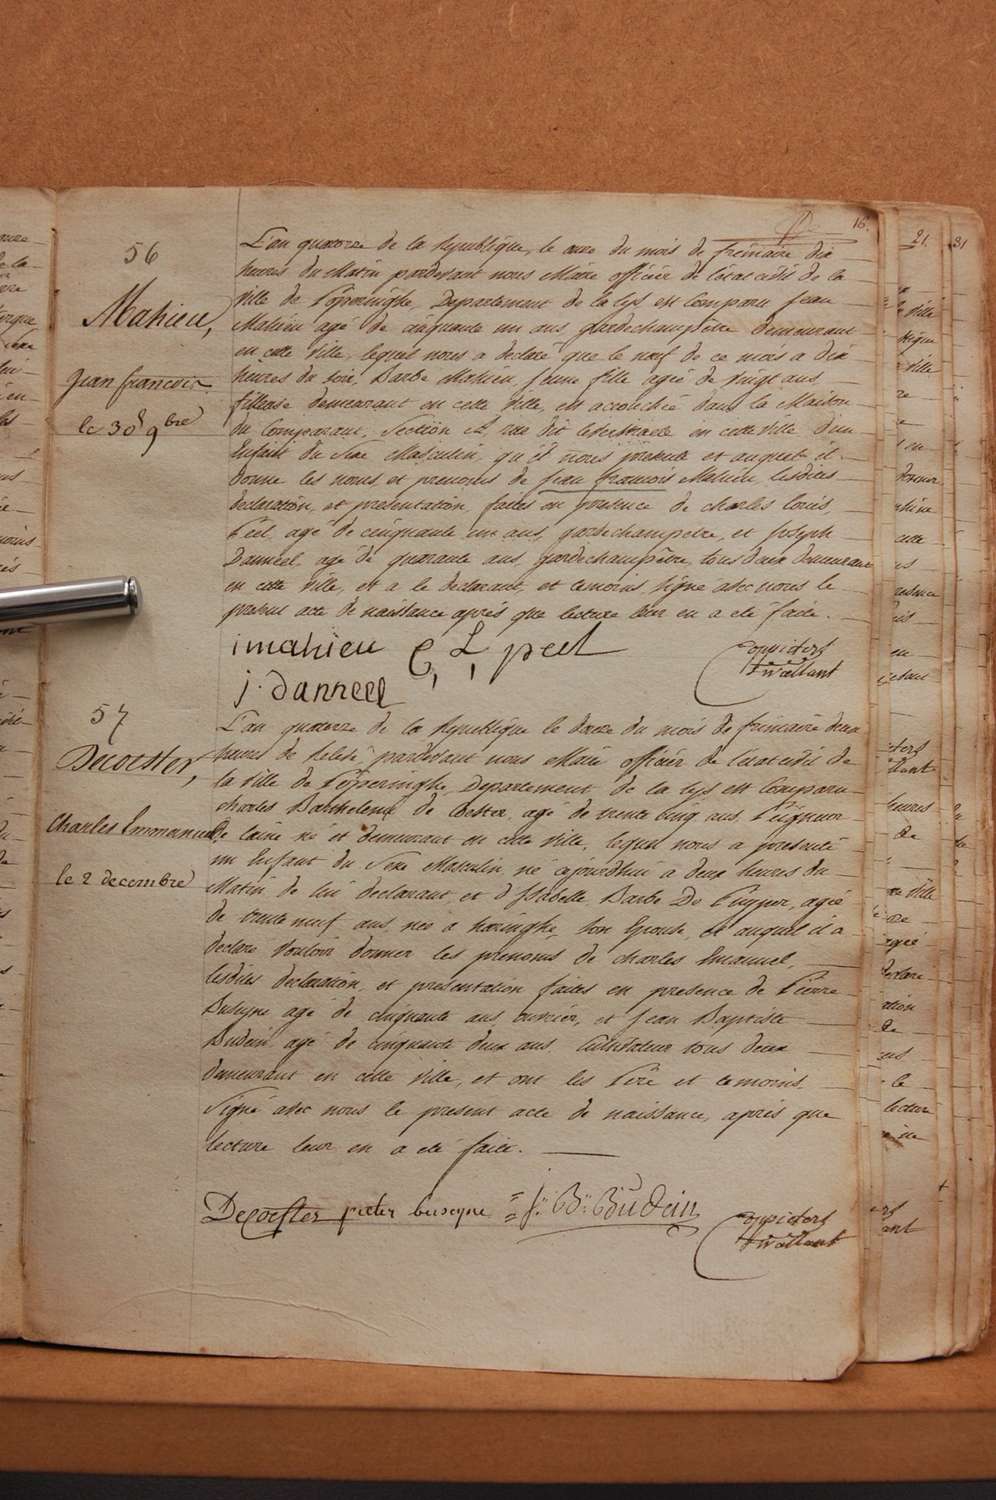 16.
56
Mahieu,
Jean francois
le 30 9bre
L'an quatorze de la Republique, le onze du mois de frimaire dix
heures du Matin pardevant nous Maire officier de l'etat civil de la
ville de Popperinghe, Departement de la Lys est Comparu Jean
Mahieu agé de cinquante un ans, gardechampêtre demeurant
en cette Ville, lequel nous a declaré que le neuf de ce mois a dix
heures du soir, Barbe Mahieu, Jeune fille agée de vingt ans,
fileuse demeurant en cette Ville, est accouchée dans la Maison
du Comparant, Section A, rue dit en cette Ville d'un
Enfant du Sexe Masculin, qu'il nous presente et auquel il
donne les noms et prenoms de Jean francois Mahieu, lesdites
declaration, et presentation, faites en presence de charles louis,
Peel, agé de cinquante un ans, gardechampetre, et Joseph
Danneel, agé de quarante ans, gardechampêtre, tous deux demeurant
en cette Ville, et a le declarant, et temoins, signé avec nous le
present acte de naissance après que lecture leur en a eté faite.
imahieu C, L, peel
j. danneel
57
Decoester,
Charles Emmanuel
le 2 decembre
L'an quatorze de la Republique le douze du mois de frimaire deux
heures de relevé pardevant nous Maire officier de l'etat civil de
la ville de Popperinghe, Departement de la Lys est Comparu
charles Barthelemi de Coester, agé de trente cinq ans, Peigneur
de laine né et demeurant en cette ville, lequel nous a presenté
un Enfant du Sexe Masculin né aujourdhui a deux heures du
Matin de lui declarant, et d'Isabelle Barbe De Puyper, agée
de trente neuf ans, née a haringhe, son Epouse, et auquel il a
declaré vouloir donner les prenoms de charles Emanuel,
lesdites declaration, et presentation faites en presence de Pierre
Buseyne agé de cinquante ans ouvrier, et Jean Baptiste
Budein agé de cinquante deux ans, Cultivateur tous deux
demeurant en cette ville, et ont les Père et temoins,
Signé avec nous le present acte de naissance, après que
lecture leur en a eté faite.
Decoester pieter buseyne J: B: Budein